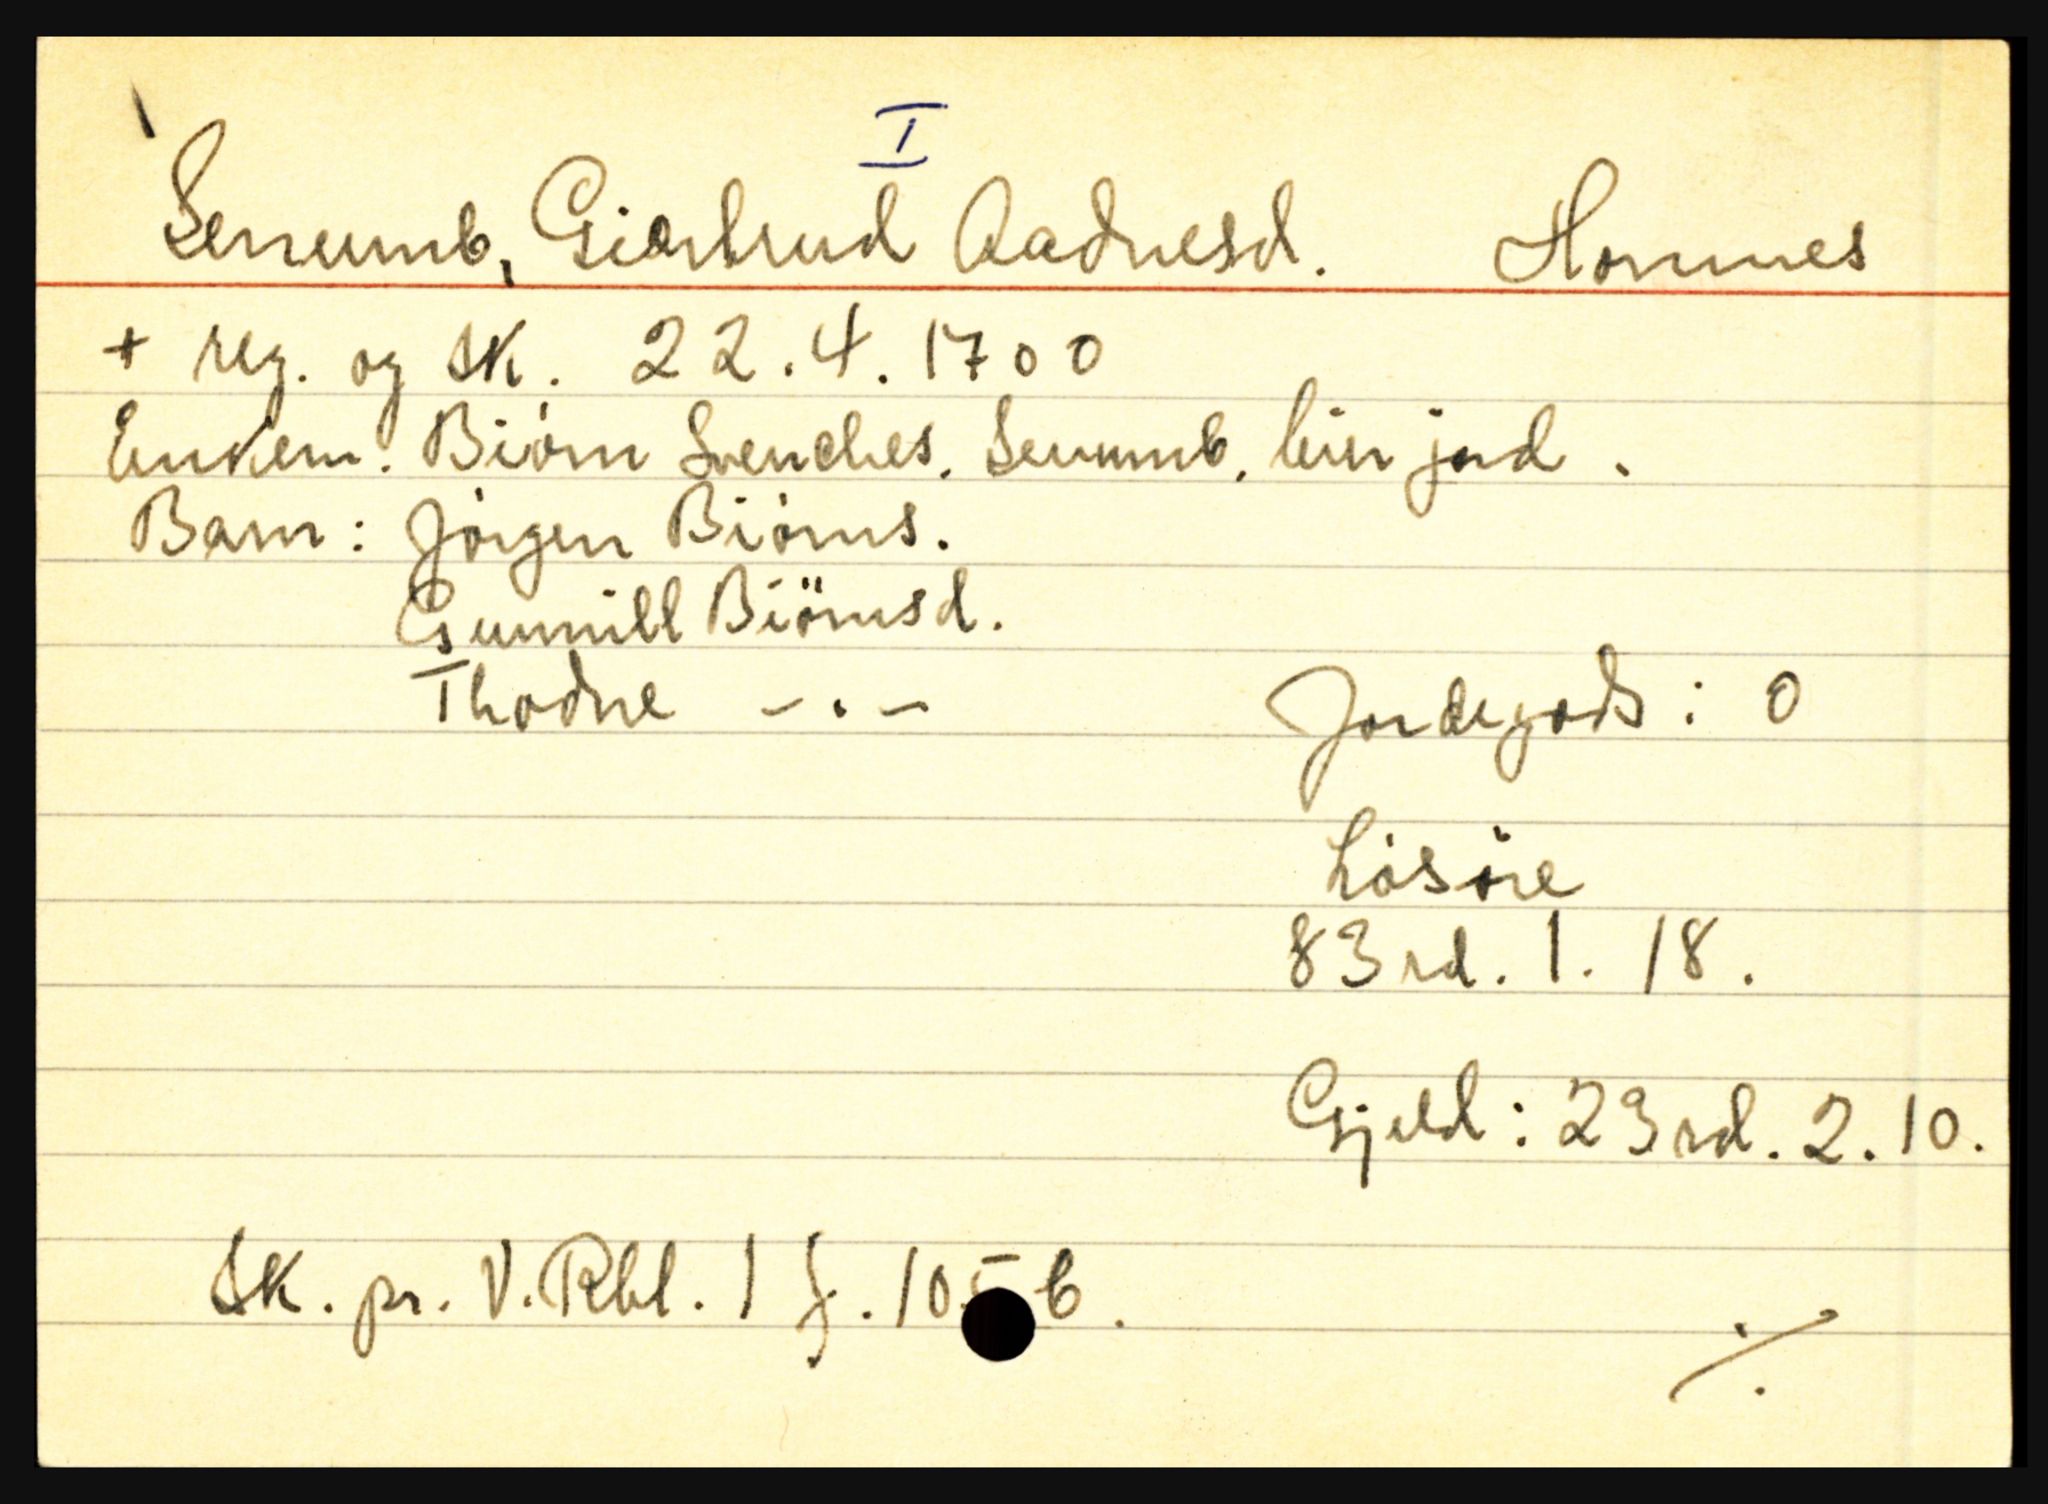 I
Serrumb, Giertrud Aadnesd. Hommes
+ reg. og sk. 22.4.1700
Enkem. Biörn Svenches. Serrumb, leier jord.
Barn: Jörgen Biörns.
Gunnill Biörnsd.
Thodne -.-
Jordegods: 0
Lösöre
83 rd. 1. 18.
Gjeld: 23 rd. 2. 10.
Sk. pr. V. Rbl. 1 f. 105 b.